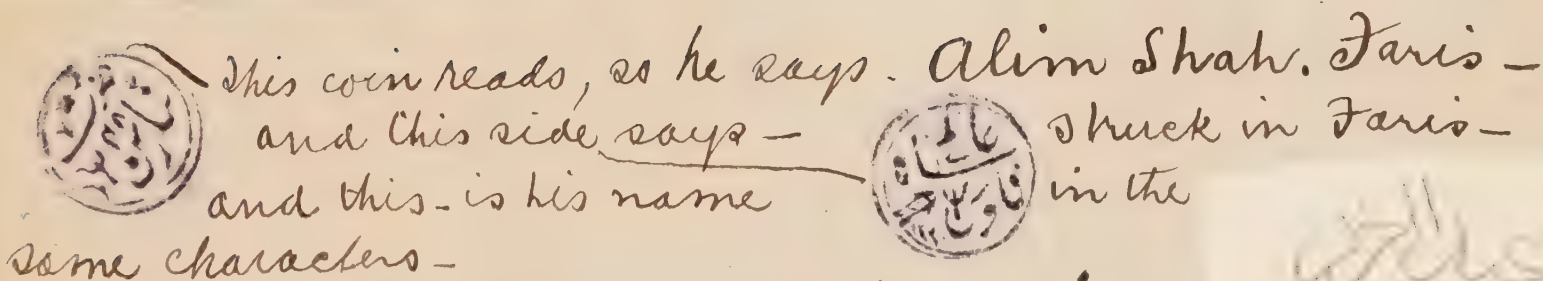 This coin reads, so he says. Alim Shah. Faris -
and this side says - struck in Faris -
and this - is his name in the
same characters -